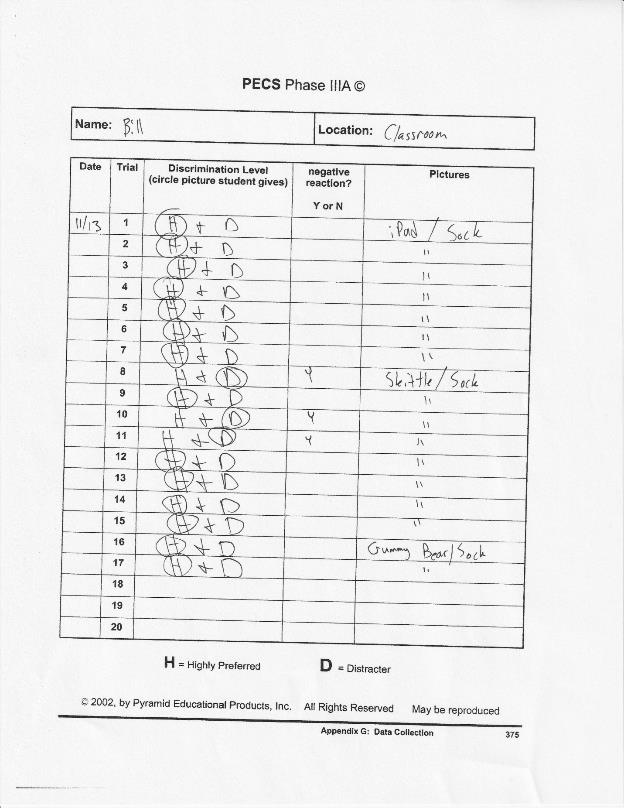 PECS Phase IIIA ©
Name: Bill Location: Classroom
Date Trial Discrimination Level (circle picture student gives) negative reaction? Y or N Pictures
11/13 1 H + D iPad / Sock
2 H + D "
3 H + D "
4 H + D "
5 H + D "
6 H + D "
7 H + D "
8 H + D Y Skittle / Sock
9 H + D "
10 H + D Y "
11 H + D Y "
12 H + D "
13 H + D "
14 H + D "
15 H + D "
16 H + D Gummy Bear / Sock
17 H + D "
18
19
20
H = Highly Preferred D = Distracter
© 2002, by Pyramid Educational Products, Inc. All Rights Reserved May be reproduced
Appendix G: Data Collection 375